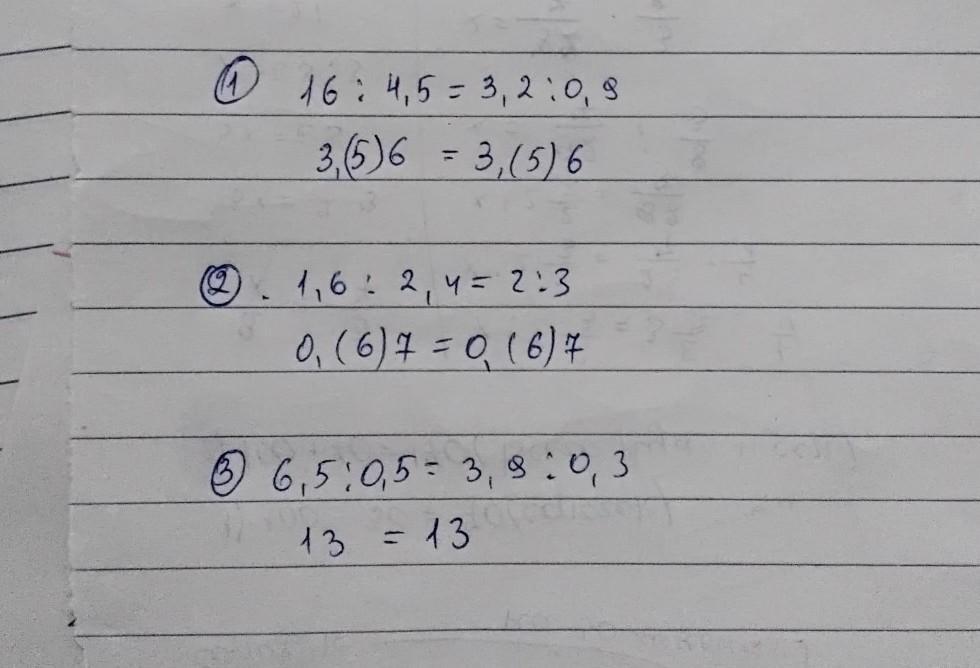 ① 16 : 4,5 = 3,2 : 0,9
3,(5)6 = 3,(5)6
②. 1,6 : 2,4 = 2:3
0,(6)7 = 0,(6)7
③ 6,5:0,5= 3,9:0,3
13 = 13